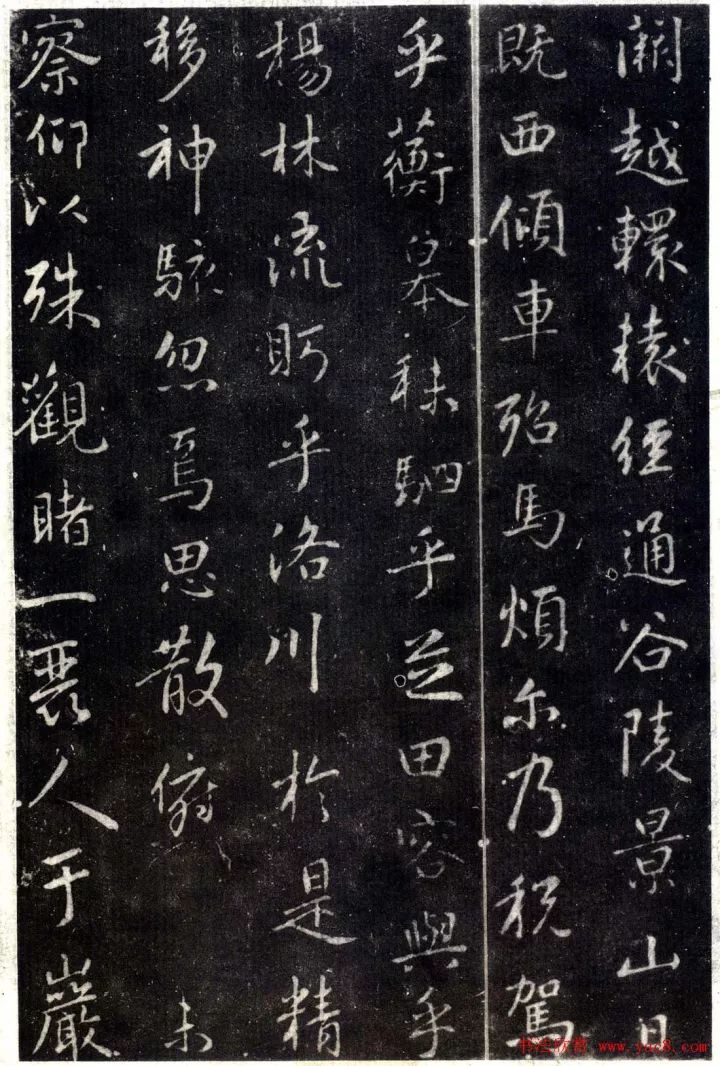 闕越轘轅經通谷陵景山日
既西傾車殆馬煩尓乃税駕
乎蘅皋秣駟乎芝田容與乎
楊林流眄乎洛川於是精
移神駭忽焉思散俯未
察仰以殊觀睹一麗人于巖
www.yac8.com